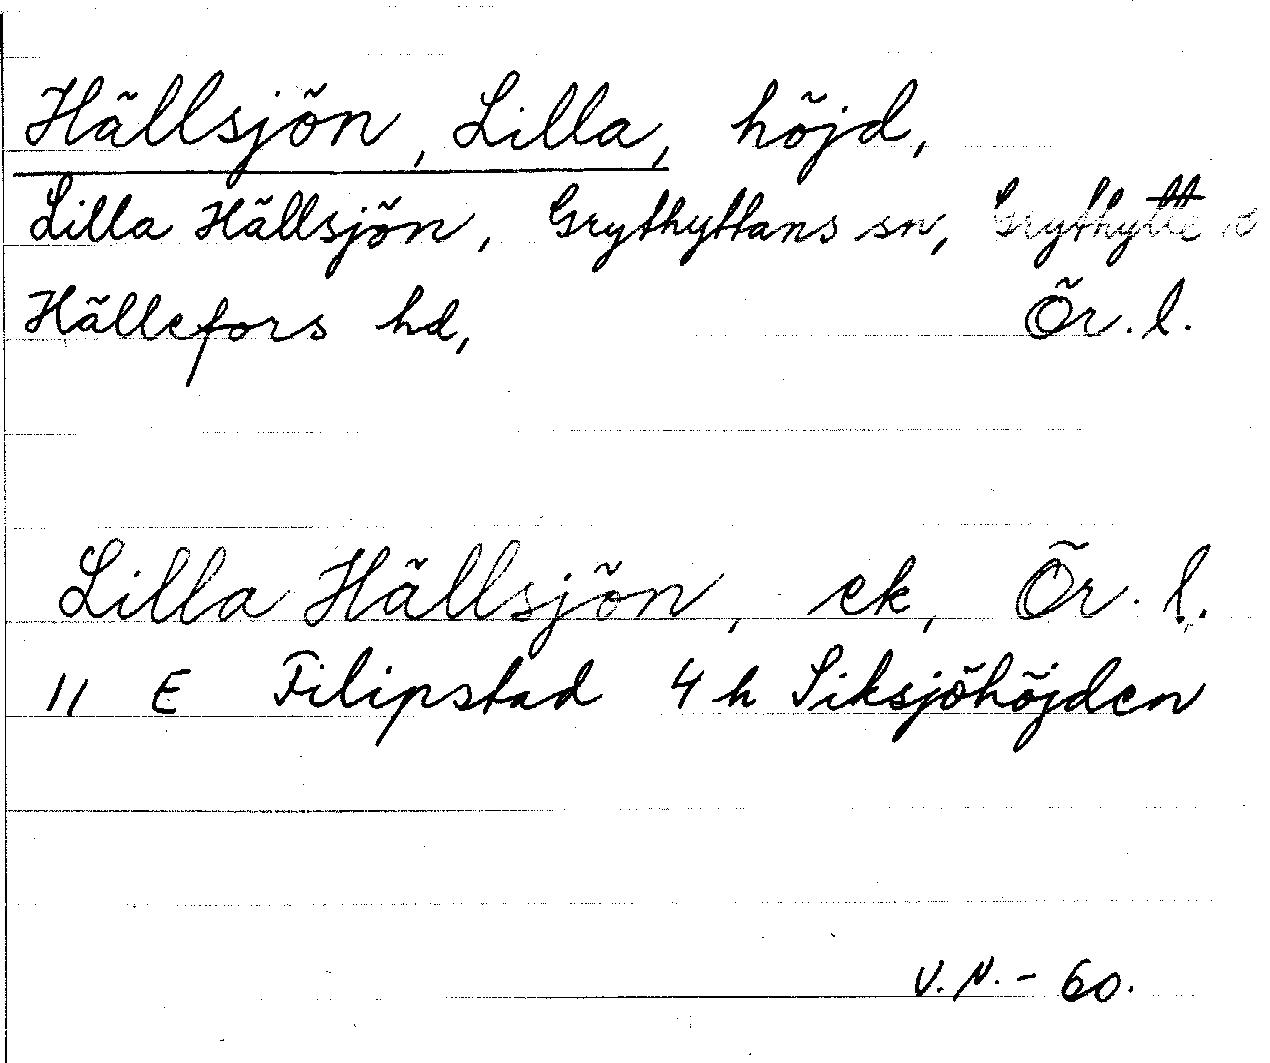 Hällsjön, Lilla, höjd,
Lilla Hällsjön, Grythyttans sn, Grythytte o
Hällefors hd, Ör. l.
Lilla Hällsjön, ek, Ör. l.
11 E Filipstad 4 h Siksjöhöjden
V. N. - 60.